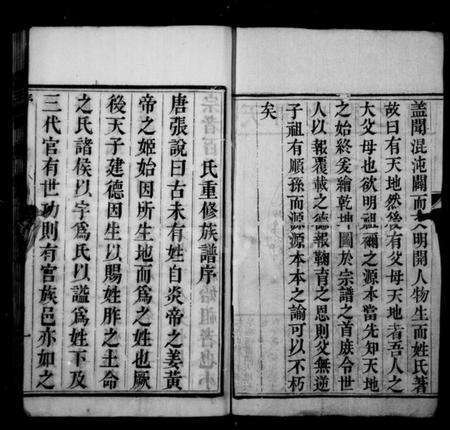 蓋聞混沌闢而文明開人物生而姓氏著
故曰有天地然後有父母天地者吾人之
大父母也欲明祖禰之源本當先知天地
之始終爰繪乾坤圖於宗譜之首庶令世
人以報覆載之德報鞠育之恩則父無逆
子祖有順孫而源源本本之諭可以不朽
矣
氏重修族譜序
唐張說曰古未有姓自炎帝之姜黃
帝之姬始因所生地而爲之姓也厥
後天子建德因生以賜姓胙之土命
之氏諸侯以字爲氏以謚爲姓下及
三代官有世功則有官族邑亦如之